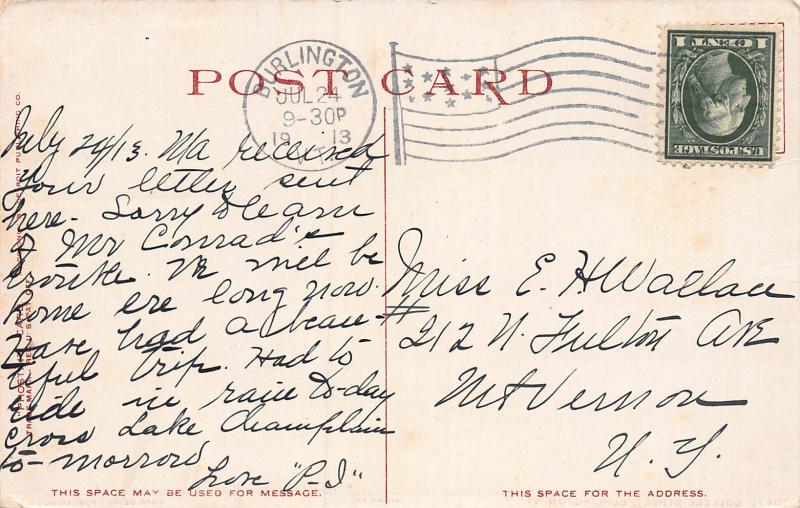 POST CARD
BURLINGTON
JUL 24
9-30P
1913
1 CENT 1
U.S. POSTAGE
July 24/13. Ma received
your letter sent
here - Sorry to learn
of Mr Conrad's
We will be
home ere long now.
Have had a beau-
tiful trip. Had to
ride in rain to-day
cross Lake Champlain
to-morrow
Love "P-I"
Miss E. H. Wallace
# 212 N. Fulton Ave
Mt Vernon
N. Y.
THIS SPACE MAY BE USED FOR MESSAGE.
THIS SPACE FOR THE ADDRESS.